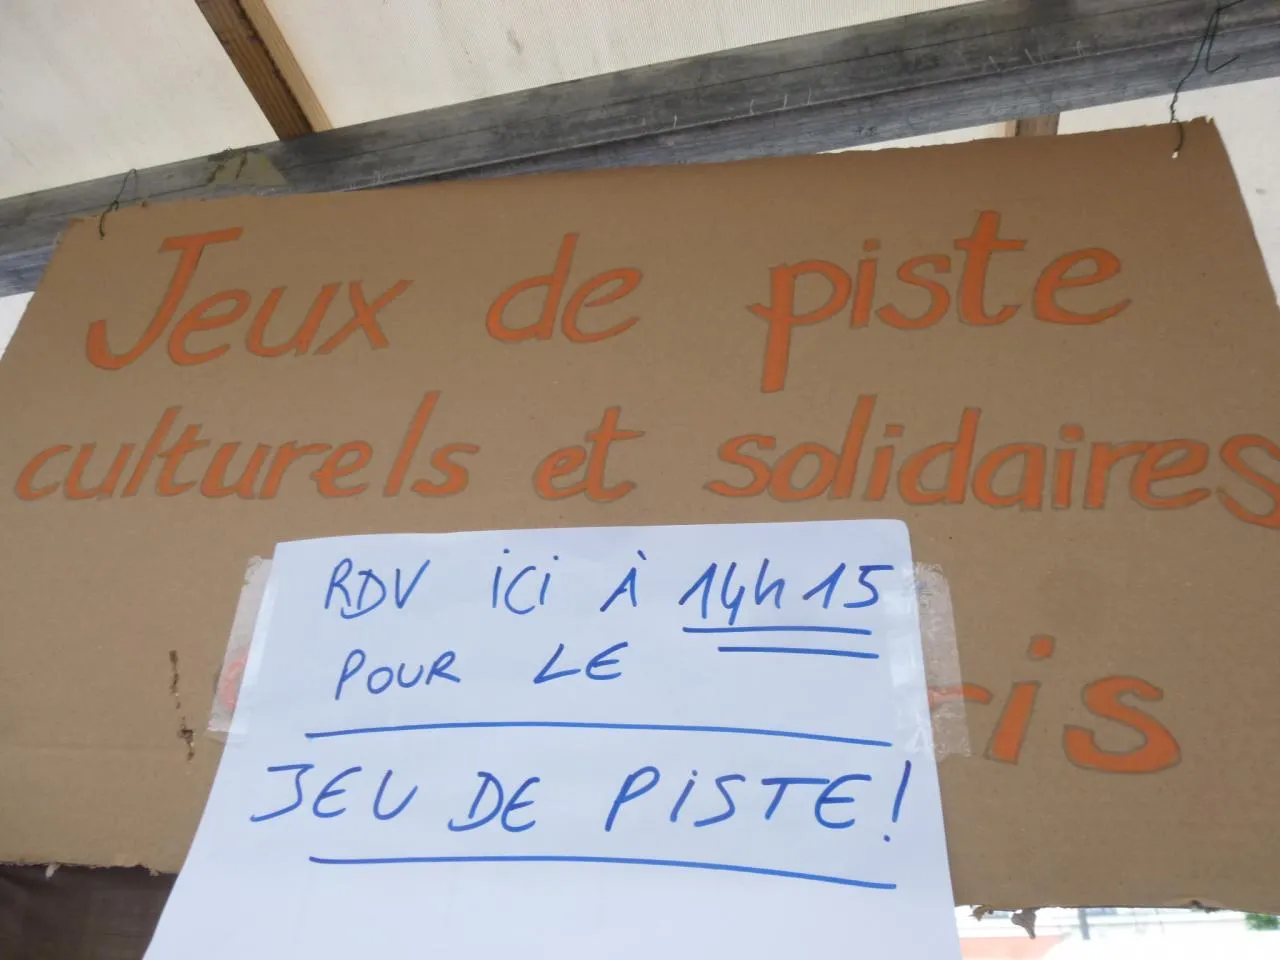 Jeux de piste
culturels et solidaires
RDV ICI À 14h15
POUR LE
JEU DE PISTE!